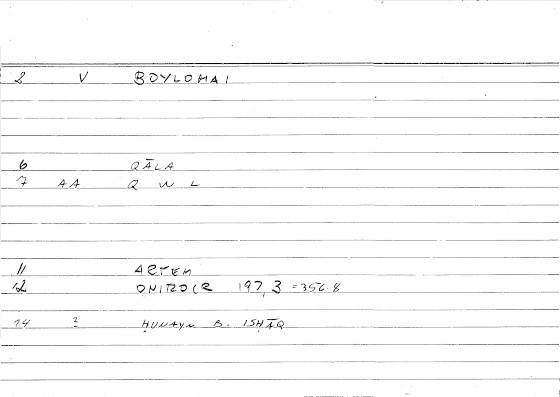 2 V BOYLOMAI
6 QĀLA
7 AA Q W L
11 ARTEM
12 ONIROCR 197,3 =356.8
14 3 ḤUNAYN B. ISḤĀQ